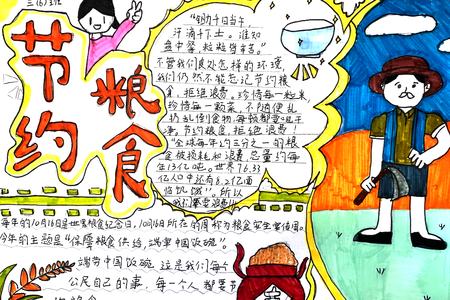 三(6)3班
节约
粮食
"锄禾日当午，
汗滴禾下土。谁知
盘中餐，粒粒皆辛苦。"
不管我们身处怎样的环境，
我们仍然不能忘记节约粮
食，拒绝浪费。珍惜每一粒米，
珍惜每一颗菜，不随便乱
扔乱倒食物，每顿都要吃干
净。节约粮食，拒绝浪费！
"全球每年约三分之一的粮
食被损耗和浪费，总量约每
年13亿吨。世界76.33
亿人口中还有8.2亿面
临饥饿"。所以
我们要拒绝浪费！
每年的10月16日是世界粮食纪念日，10月16日所在的周称为粮食安全宣传周。
今年的主题是"保障粮食供给，端牢中国饭碗"。
端牢中国饭碗，这是我们每个
公民自己的事，每一个人都要节